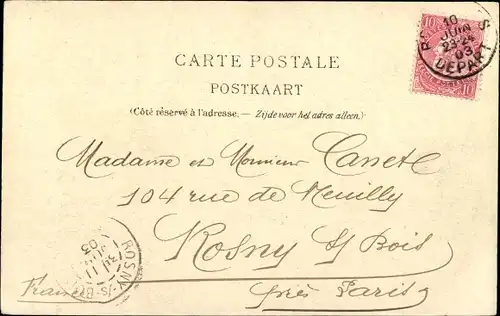 10
JUIN
23-24
03
DEPART
10 10
CARTE POSTALE
POSTKAART
(Côté réservé à l'adresse. — Zijde voor het adres alleen.)
Madame et Monsieur Canet
104 rue de Neuilly
Rosny S/ Bois
France près Paris
ROSNY
11
03